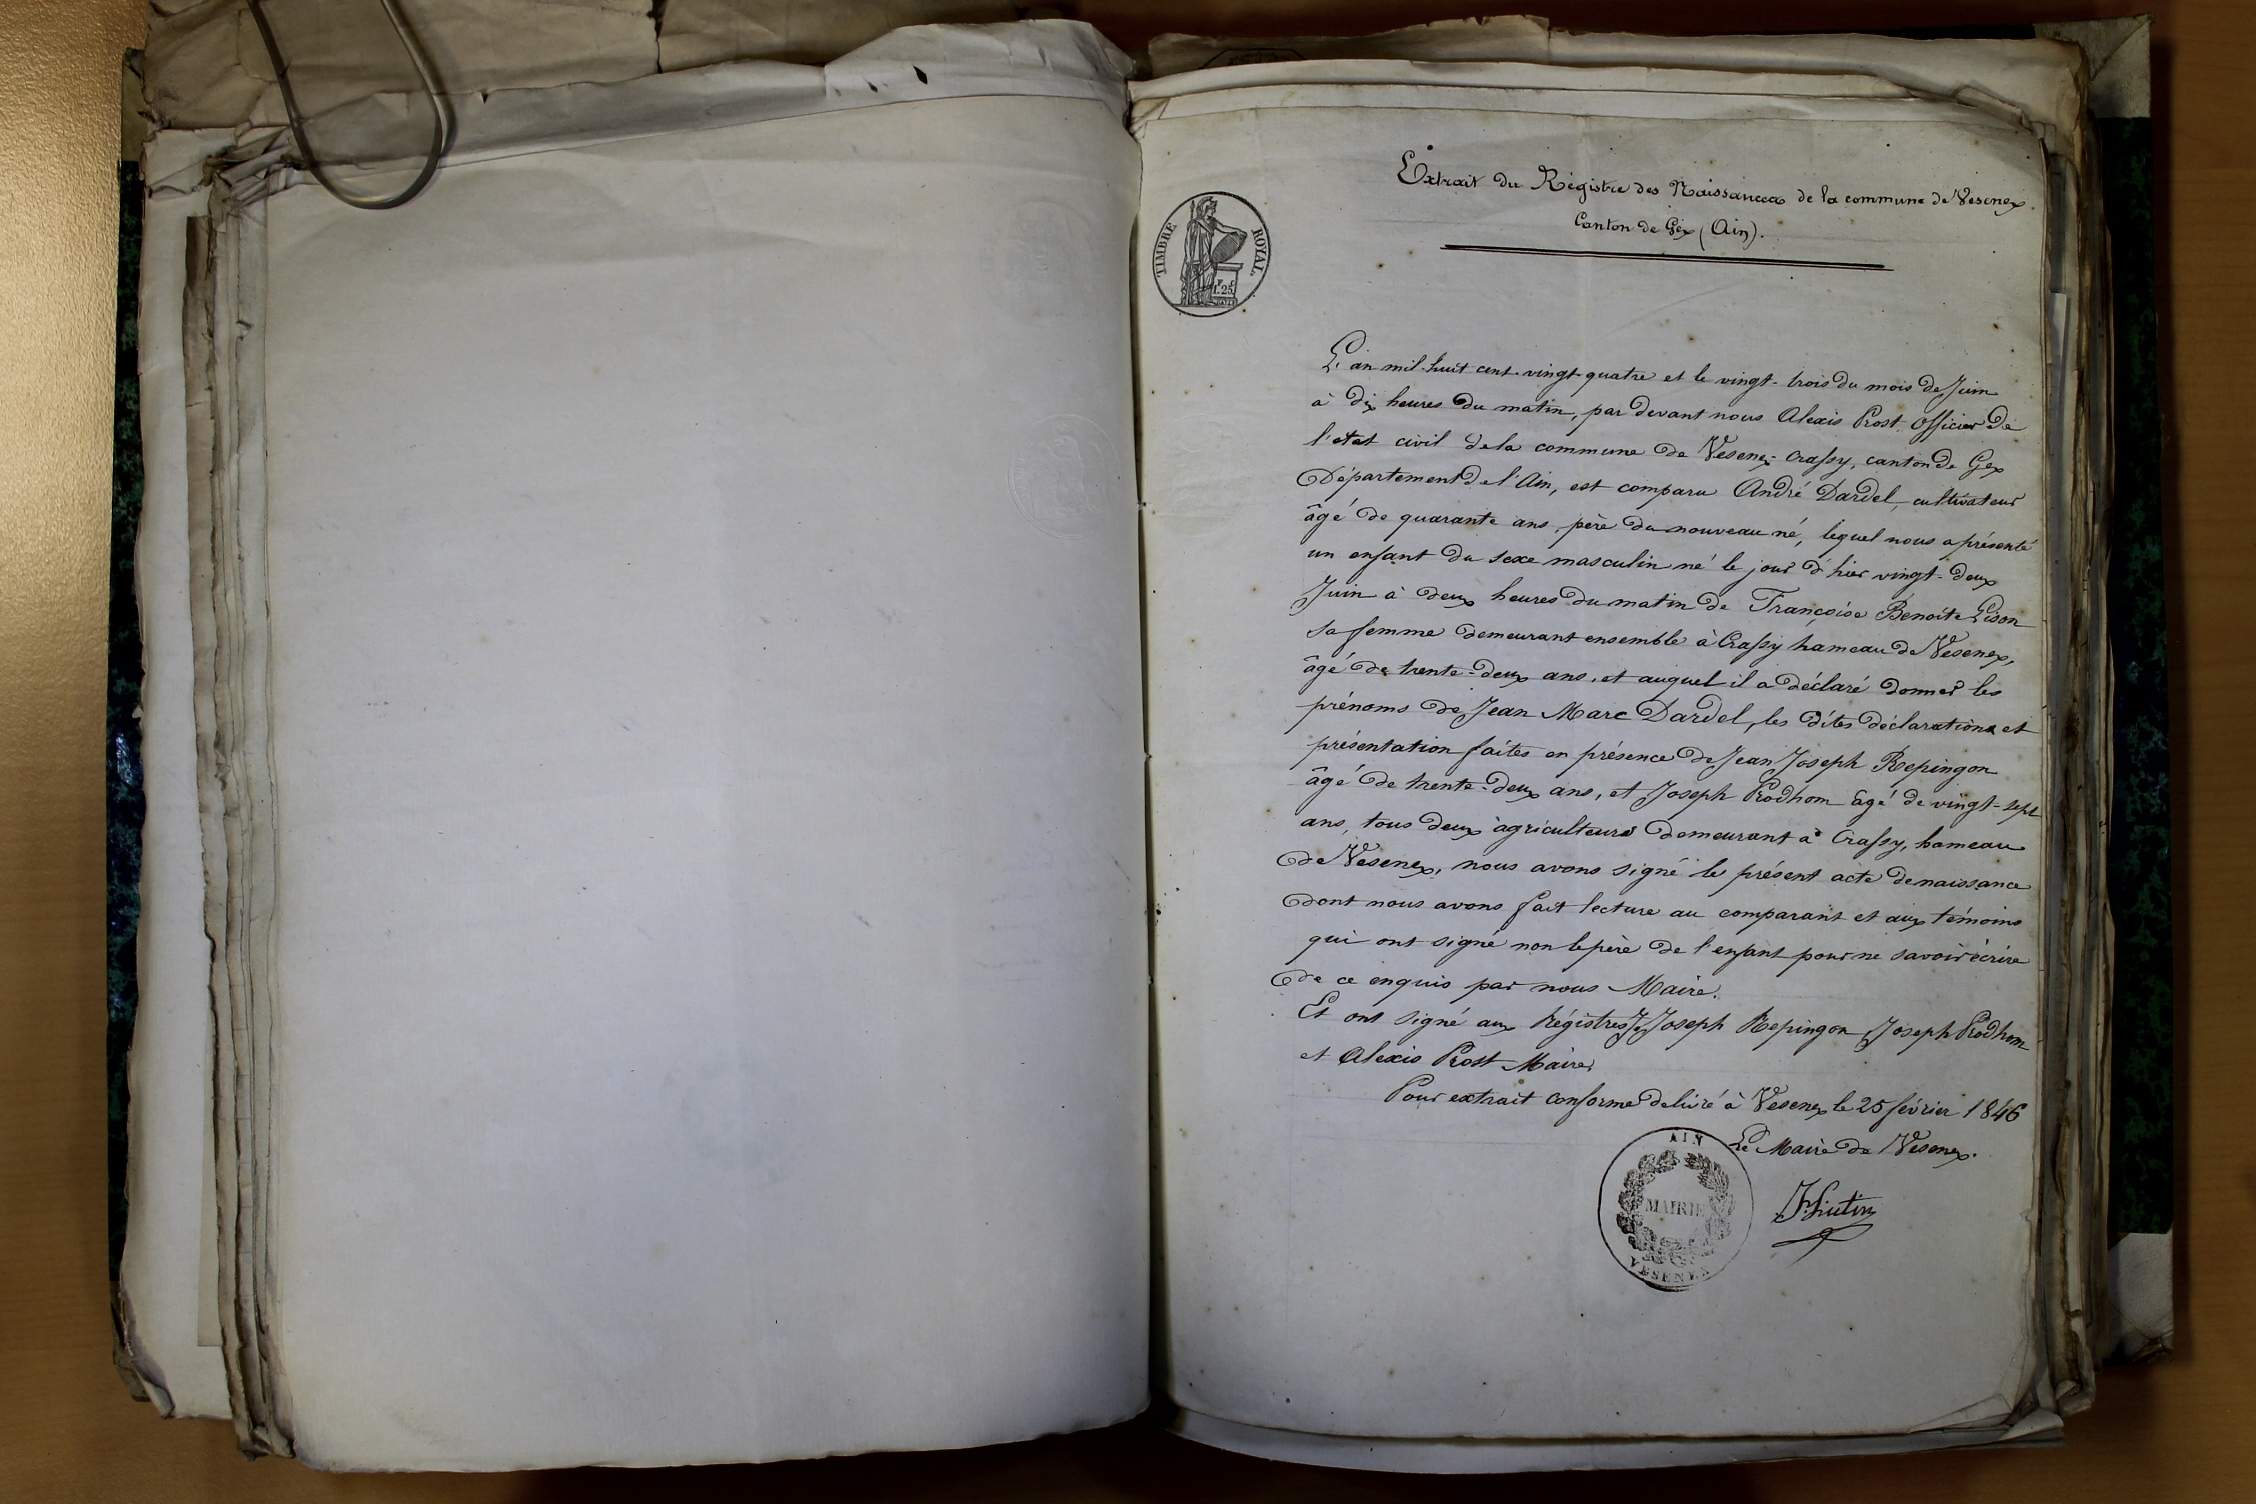 Extrait du Régistre des Naissances de la commune de Vesenex
Canton de Gex (Ain).
TIMBRE ROYAL
1. 25
L'an mil-huit cent-vingt-quatre et le vingt-trois du mois de Juin
à dix heures du matin, par devant nous Alexis Prost officier de
l'etat civil de la commune de Vesenex-Crassy, canton de Gex
Département de l'Ain, est comparu André Dardel, cultivateur
âgé de quarante ans, père du nouveau né, lequel nous a présenté
un enfant du sexe masculin né le jour d'hier vingt-deux
Juin à deux heures du matin de Françoise Benoite Pison
sa femme demeurant ensemble à Crassy hameau de Vesenex,
âgé de trente-deux ans, et auquel il a déclaré donner les
prénoms de Jean Marc Dardel, les dites déclarations et
présentation faites en présence de Jean Joseph Repingon
âgé de trente-deux ans, et Joseph Prodhom âgé de vingt-sept
ans, tous deux agriculteurs demeurant à Crassy, hameau
de Vesenex, nous avons signé le présent acte de naissance
dont nous avons fait lecture au comparant et aux témoins
qui ont signé non le père de l'enfant pour ne savoir écrire
de ce enquis par nous Maire.
Et ont signé aux Régistres J. Joseph Repingon, Joseph Prodhom
et Alexis Prost Maire.
Pour extrait conforme delivré à Vesenex le 25 février 1846
Le Maire de Vesenex.
AIN
MAIRIE
VESENEX